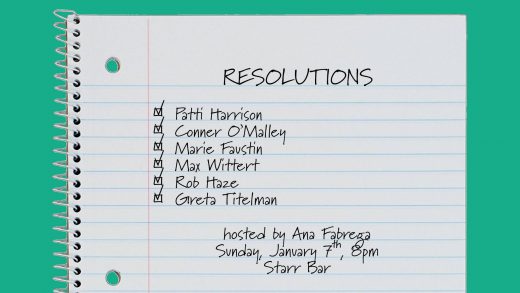 RESOLUTIONS
Patti Harrison
Conner O'Malley
Marie Faustin
Max Wittert
Rob Haze
Greta Titelman
hosted by Ana Fabrega
Sunday, January 7th, 8pm
Starr Bar